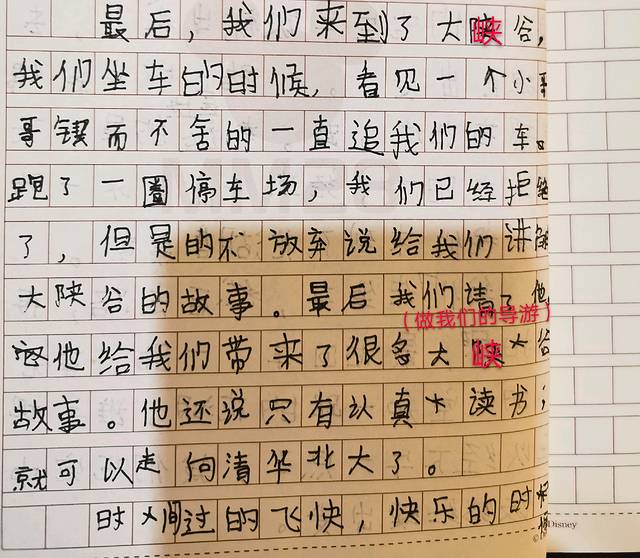 最后，我们来到了大峡谷，
我们坐车的时候，看见一个小哥
哥锲而不舍的一直追我们的车。
跑了一圈停车场，我们已经拒绝
了，但是的不放弃说给我们讲解
大陕谷的故事。最后我们请了他
（做我们的导游）
他给我们带来了很多大峡谷
故事。他还说只有认真读书，
就可以走向清华北大了。
时间过的飞快，快乐的时
©Disney